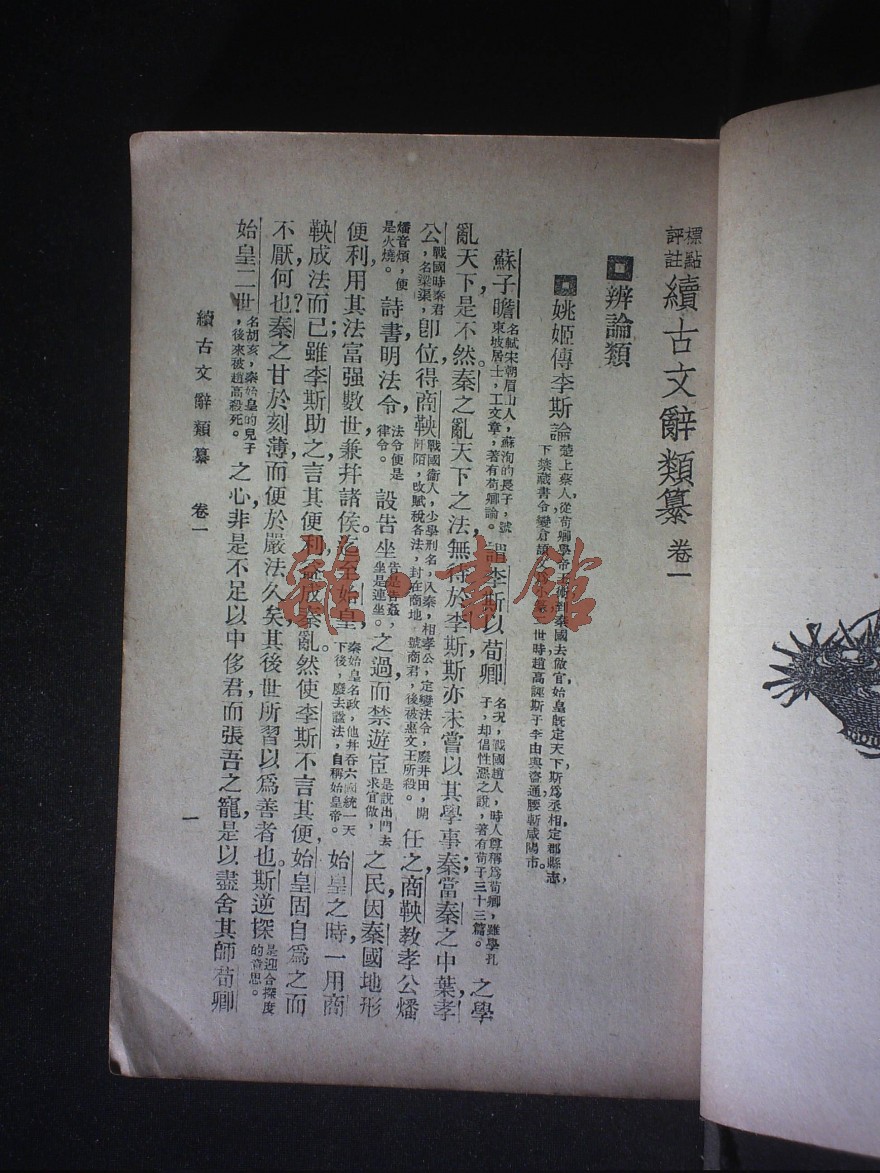 標點評註續古文辭類纂 卷一
辨論類
姚姬傳李斯論 楚上蔡人，從荀卿學帝王術到秦國去做官始皇既定天下斯爲丞相定郡縣志，下禁藏書令變倉頡文爲小篆二世時趙高誣斯子李由與盜通腰斬咸陽市。
蘇子瞻名軾宋朝眉山人，蘇洵的長子，號東坡居士，工文章，著有荀卿論。謂李斯以荀卿名況，戰國趙人，時人尊稱爲荀卿，雖學孔子，却倡性惡之說，著有荀子三十三篇。之學
亂天下，是不然。秦之亂天下之法，無待於李斯，斯亦未嘗以其學事秦；當秦之中葉，孝
公，戰國時秦君，名梁渠，卽位得商鞅戰國衞人，少學刑名，入秦，相孝公，定變法令，廢井田，開阡陌，改賦稅各法，封在商地 號商君，後被惠文王所殺。任之，商鞅敎孝公燔
燔音煩，便是火燒。詩書，明法令，法令便是律令。設告坐告是告姦，坐是連坐。之過，而禁遊宦是說出門去求官做，之民，因秦國地形
便利，用其法富强數世，兼幷諸侯，迄至始皇，秦始皇名政，他幷吞六國統一天下後，廢去諡法，自稱始皇帝。始皇之時，一用商
鞅成法而已；雖李斯助之，言其便利，益成秦亂。然使李斯不言其便，始皇固自爲之而
不厭，何也？秦之甘於刻薄，而便於嚴法久矣，其後世所習以爲善者也。斯逆探是迎合探度的意思。
始皇二世名胡亥，秦始皇的兒子，後來被趙高殺死。之心，非是不足以中侈君而張吾之寵，是以盡舍其師荀卿
續古文辭類纂 卷一
一
雜·書館